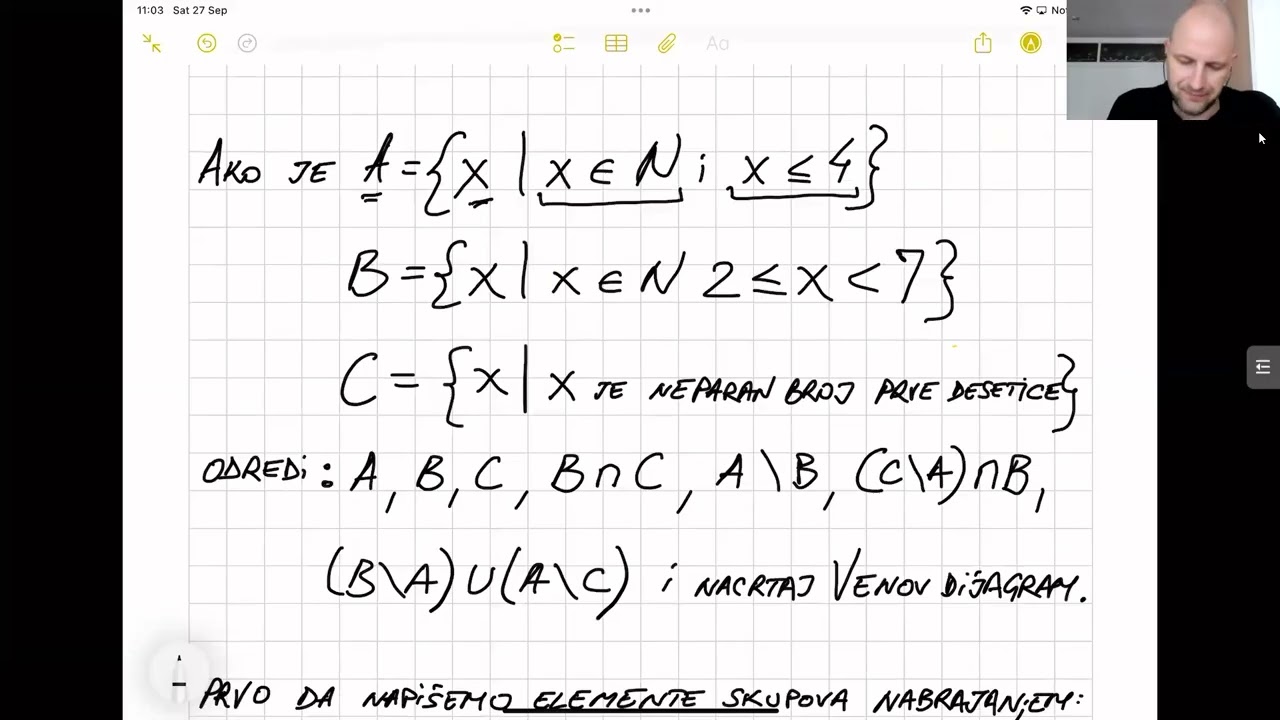 11:03 Sat 27 Sep
Aa
AKO JE A={x | x ∈ N i x ≤ 4}
B={x | x ∈ N 2 ≤ x < 7}
C = {x | x JE NEPARAN BROJ PRVE DESETICE}
ODREDi: A, B, C, B∩C, A\B, (C\A)∩B,
(B\A)∪(A\C) i NACRTAJ VENOV DiJAGRAM.
PRVO DA NAPiŠEMO ELEMENTE SKUPOVA NABRAJANJEM: